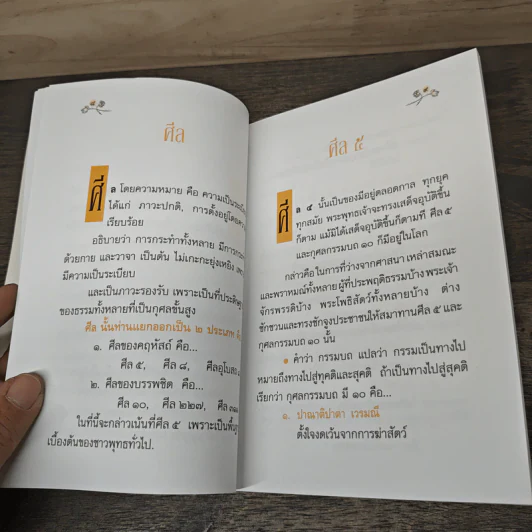 ศีล
ศี
ล โดยความหมาย คือ ความเป็นระเบีย
ได้แก่ ภาวะปกติ, การตั้งอยู่โดยควา
เรียบร้อย
อธิบายว่า การกระทำทั้งหลาย มีการกระ
ด้วยกาย และวาจา เป็นต้น ไม่เกะกะยุ่งเหยิง
มีความเป็นระเบียบ
และเป็นภาวะรองรับ เพราะเป็นที่ประดิษฐ
ของธรรมทั้งหลายที่เป็นกุศลขั้นสูง
ศีล นั้นท่านแยกออกเป็น ๒ ประเภท
๑. ศีลของคฤหัสถ์ คือ...
ศีล ๕, ศีล ๘, ศีลอุโบสถ
๒. ศีลของบรรพชิต คือ...
ศีล ๑๐, ศีล ๒๒๗, ศีล ๓๑๑
ในที่นี้จะกล่าวเน้นที่ศีล ๕ เพราะเป็นพื้นฐ
เบื้องต้นของชาวพุทธทั่วไป.
ศีล ๕
ศี
ล ๕ นั้นเป็นของมีอยู่ตลอดกาล ทุกยุค
ทุกสมัย พระพุทธเจ้าจะทรงเสด็จอุบัติขึ้น
ก็ตาม แม้มิได้เสด็จอุบัติขึ้นก็ตามที ศีล ๕
และกุศลกรรมบถ ๑๐ ก็มีอยู่ในโลก
กล่าวคือ ในการที่ว่างจากศาสนา เหล่าสมณะ
และพราหมณ์ทั้งหลาย ผู้ที่ประพฤติธรรมบ้าง พระเจ้า
จักรพรรดิบ้าง พระโพธิสัตว์ทั้งหลายบ้าง ต่าง
ชักชวนและทรงชักจูงประชาชนให้สมาทานศีล ๕ และ
กุศลกรรมบถ ๑๐ นั้น
๑ คำว่า กรรมบถ แปลว่า กรรมเป็นทางไป
หมายถึงทางไปสู่ทุคติและสุคติ ถ้าเป็นทางไปสู่สุคติ
เรียกว่า กุศลกรรมบถ มี ๑๐ คือ...
๑. ปาณาติปาตา เวรมณี
ตั้งใจงดเว้นจากการฆ่าสัตว์